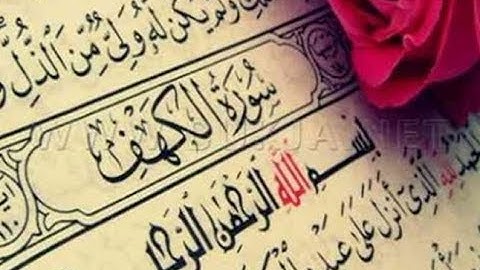 ولم يكن له ولي من الذل و
سورة الكهف
بسم الله الرحمن الرحيم
الحمد لله الذي أنزل على عبده